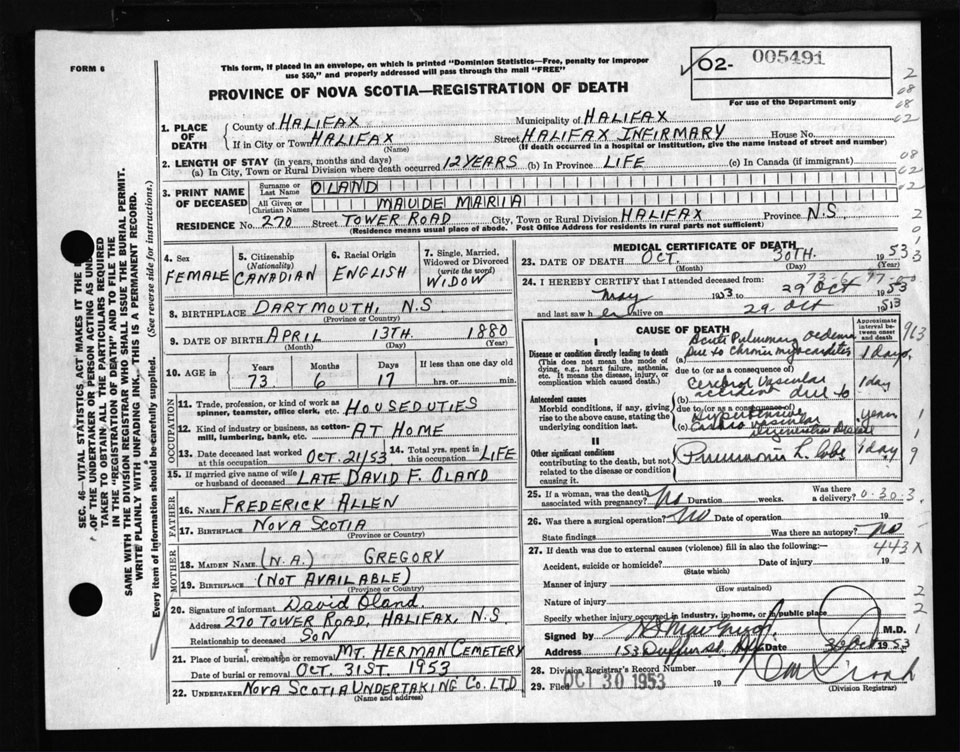 FORM 6
This form, if placed in an envelope, on which is printed "Dominion Statistics—Free, penalty for improper
use $50," and properly addressed will pass through the mail "FREE"
PROVINCE OF NOVA SCOTIA—REGISTRATION OF DEATH
02- 005491
For use of the Department only
1. PLACE OF DEATH
County of HALIFAX Municipality of HALIFAX
If in City or Town HALIFAX Street HALIFAX INFIRMARY House No.
(Name) (If death occurred in a hospital or institution, give the name instead of street and number)
2. LENGTH OF STAY (in years, months and days)
(a) In City, Town or Rural Division where death occurred 12 YEARS (b) In Province LIFE (c) In Canada (if immigrant)
3. PRINT NAME OF DECEASED
Surname or Last Name OLAND
All Given or Christian Names MAUDE MARIA
RESIDENCE No. 270 Street TOWER ROAD City, Town or Rural Division HALIFAX Province N.S.
(Residence means usual place of abode. Post Office Address for residents in rural parts not sufficient)
4. Sex FEMALE
5. Citizenship (Nationality) CANADIAN
6. Racial Origin ENGLISH
7. Single, Married, Widowed or Divorced (write the word) WIDOW
8. BIRTHPLACE DARTMOUTH, N.S
(Province or Country)
9. DATE OF BIRTH APRIL 13TH. 1880
(Month) (Day) (Year)
10. AGE in Years 73 Months 6 Days 17 If less than one day hrs. or min.
OCCUPATION
11. Trade, profession, or kind of work as spinner, teamster, office clerk, etc. HOUSEDUTIES
12. Kind of industry or business, as cotton-mill, lumbering, bank, etc. AT HOME
13. Date deceased last worked at this occupation OCT. 21/53
14. Total yrs. spent in this occupation LIFE
15. If married give name of wife or husband of deceased LATE DAVID F. OLAND
FATHER
16. Name FREDERICK ALLEN
17. Birthplace NOVA SCOTIA
(Province or Country)
MOTHER
18. Maiden Name (N.A.) GREGORY
19. Birthplace (NOT AVAILABLE)
(Province or Country)
20. Signature of informant David Oland.
Address 270 TOWER ROAD, HALIFAX, N.S.
Relationship to deceased SON
21. Place of burial, cremation or removal MT. HERMAN CEMETERY
Date of burial or removal OCT. 31ST. 1953
22. Undertaker NOVA SCOTIA UNDERTAKING CO. LTD
(Name and address)
MEDICAL CERTIFICATE OF DEATH
23. DATE OF DEATH OCT. 30TH. 1953
(Month) (Day) (Year)
24. I HEREBY CERTIFY that I attended deceased from:
May 1953 to 29 Oct 1953
and last saw h er alive on 29 Oct 1953
CAUSE OF DEATH
Approximate interval between onset and death
I
Disease or condition directly leading to death
(This does not mean the mode of dying, e.g., heart failure, asthenia, etc. It means the disease, injury, or complication which caused death.)
(a) Acute Pulmonary oedema due to Chronic myocarditis 1 days
due to (or as a consequence of)
Antecedent causes
Morbid conditions, if any, giving rise to the above cause, stating the underlying condition last.
(b) Cerebral Vascular accident due to 1 day
due to (or as a consequence of)
(c) Hypertensive Cardio vascular Disease years
II
Other significant conditions
contributing to the death, but not related to the disease or condition causing it.
Pneumonia L. Lobe 1 day
25. If a woman, was the death associated with pregnancy? No Duration weeks. Was there a delivery?
26. Was there a surgical operation? No Date of operation 19
State findings Was there an autopsy? No
27. If death was due to external causes (violence) fill in also the following:—
443X
Accident, suicide or homicide? Date of injury 19
(State which)
Manner of injury
(How sustained)
Nature of injury
Specify whether injury occurred in industry, in home, or in public place
Signed by M.D.
Address 153 Date 30 Oct 1953
28. Division Registrar's Record Number
29. Filed OCT 30 1953 19
(Division Registrar)
SEC. 46—VITAL STATISTICS ACT MAKES IT THE
OF THE UNDERTAKER OR PERSON ACTING AS UND
TAKER TO OBTAIN ALL THE PARTICULARS REQUIRED
IN THE "REGISTRATION OF DEATH" AND TO FILE THE
SAME WITH THE DIVISION REGISTRAR WHO SHALL ISSUE THE BURIAL PERMIT.
WRITE PLAINLY WITH UNFADING INK. THIS IS A PERMANENT RECORD.
Every item of information should be carefully supplied. (See reverse side for instructions.)